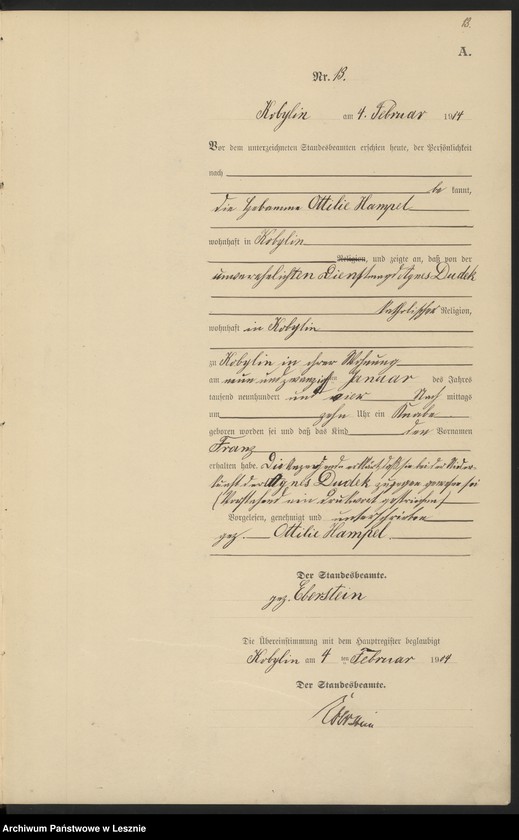 13.
A.
Nr. 13.
Kobylin am 4. Februar 1914
Vor dem unterzeichneten Standesbeamten erschien heute, der Persönlichkeit
nach
be kannt,
die Hebamme Ottilie Hampel
wohnhaft in Kobylin
Religion, und zeigte an, daß von der
unverehelichten Dienstmagd Agnes Dudek
katholischer Religion,
wohnhaft in Kobylin
zu Kobylin in ihrer Wohnung
am neun und zwanzigsten Januar des Jahres
tausend neunhundert und vier Nach mittags
um zehn Uhr ein Knabe
geboren worden sei und daß das Kind den Vornamen
Franz
erhalten habe. Die Anzeigende erklärt, daß sie bei der Nieder-
kunft der Agnes Dudek zugegen gewesen sei
(Vorstehend ein Druckwort gestrichen)
Vorgelesen, genehmigt und unterschrieben
gez. Ottilie Hampel
Der Standesbeamte.
gez. Eberstein
Die Übereinstimmung mit dem Hauptregister beglaubigt
Kobylin am 4 ten Februar 1914
Der Standesbeamte.
Eberstein
Archiwum Państwowe w Lesznie